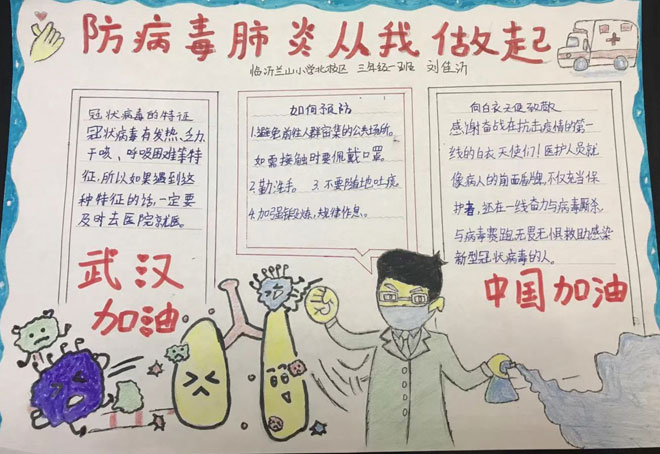 防病毒肺炎从我做起
临沂兰山小学北校区 三年级一班 刘佳沂
冠状病毒的特征
冠状病毒有发热、乏力、
干咳、呼吸困难等特
征,所以如果遇到这
种特征的话,一定要
及时去医院就医。
如何预防
1.避免前往人群密集的公共场所。
如需接触时要佩戴口罩。
2.勤洗手。 3.不要随地吐痰。
4.加强锻炼,规律作息。
向白衣天使致敬
感谢奋战在抗击疫情的第一
线的白衣天使们!医护人员就
像病人的前面盾牌,不仅充当保
护者,还在一线奋力与病毒厮杀,
与病毒赛跑,无畏无惧救助感染
新型冠状病毒的人。
武汉
加油
中国加油